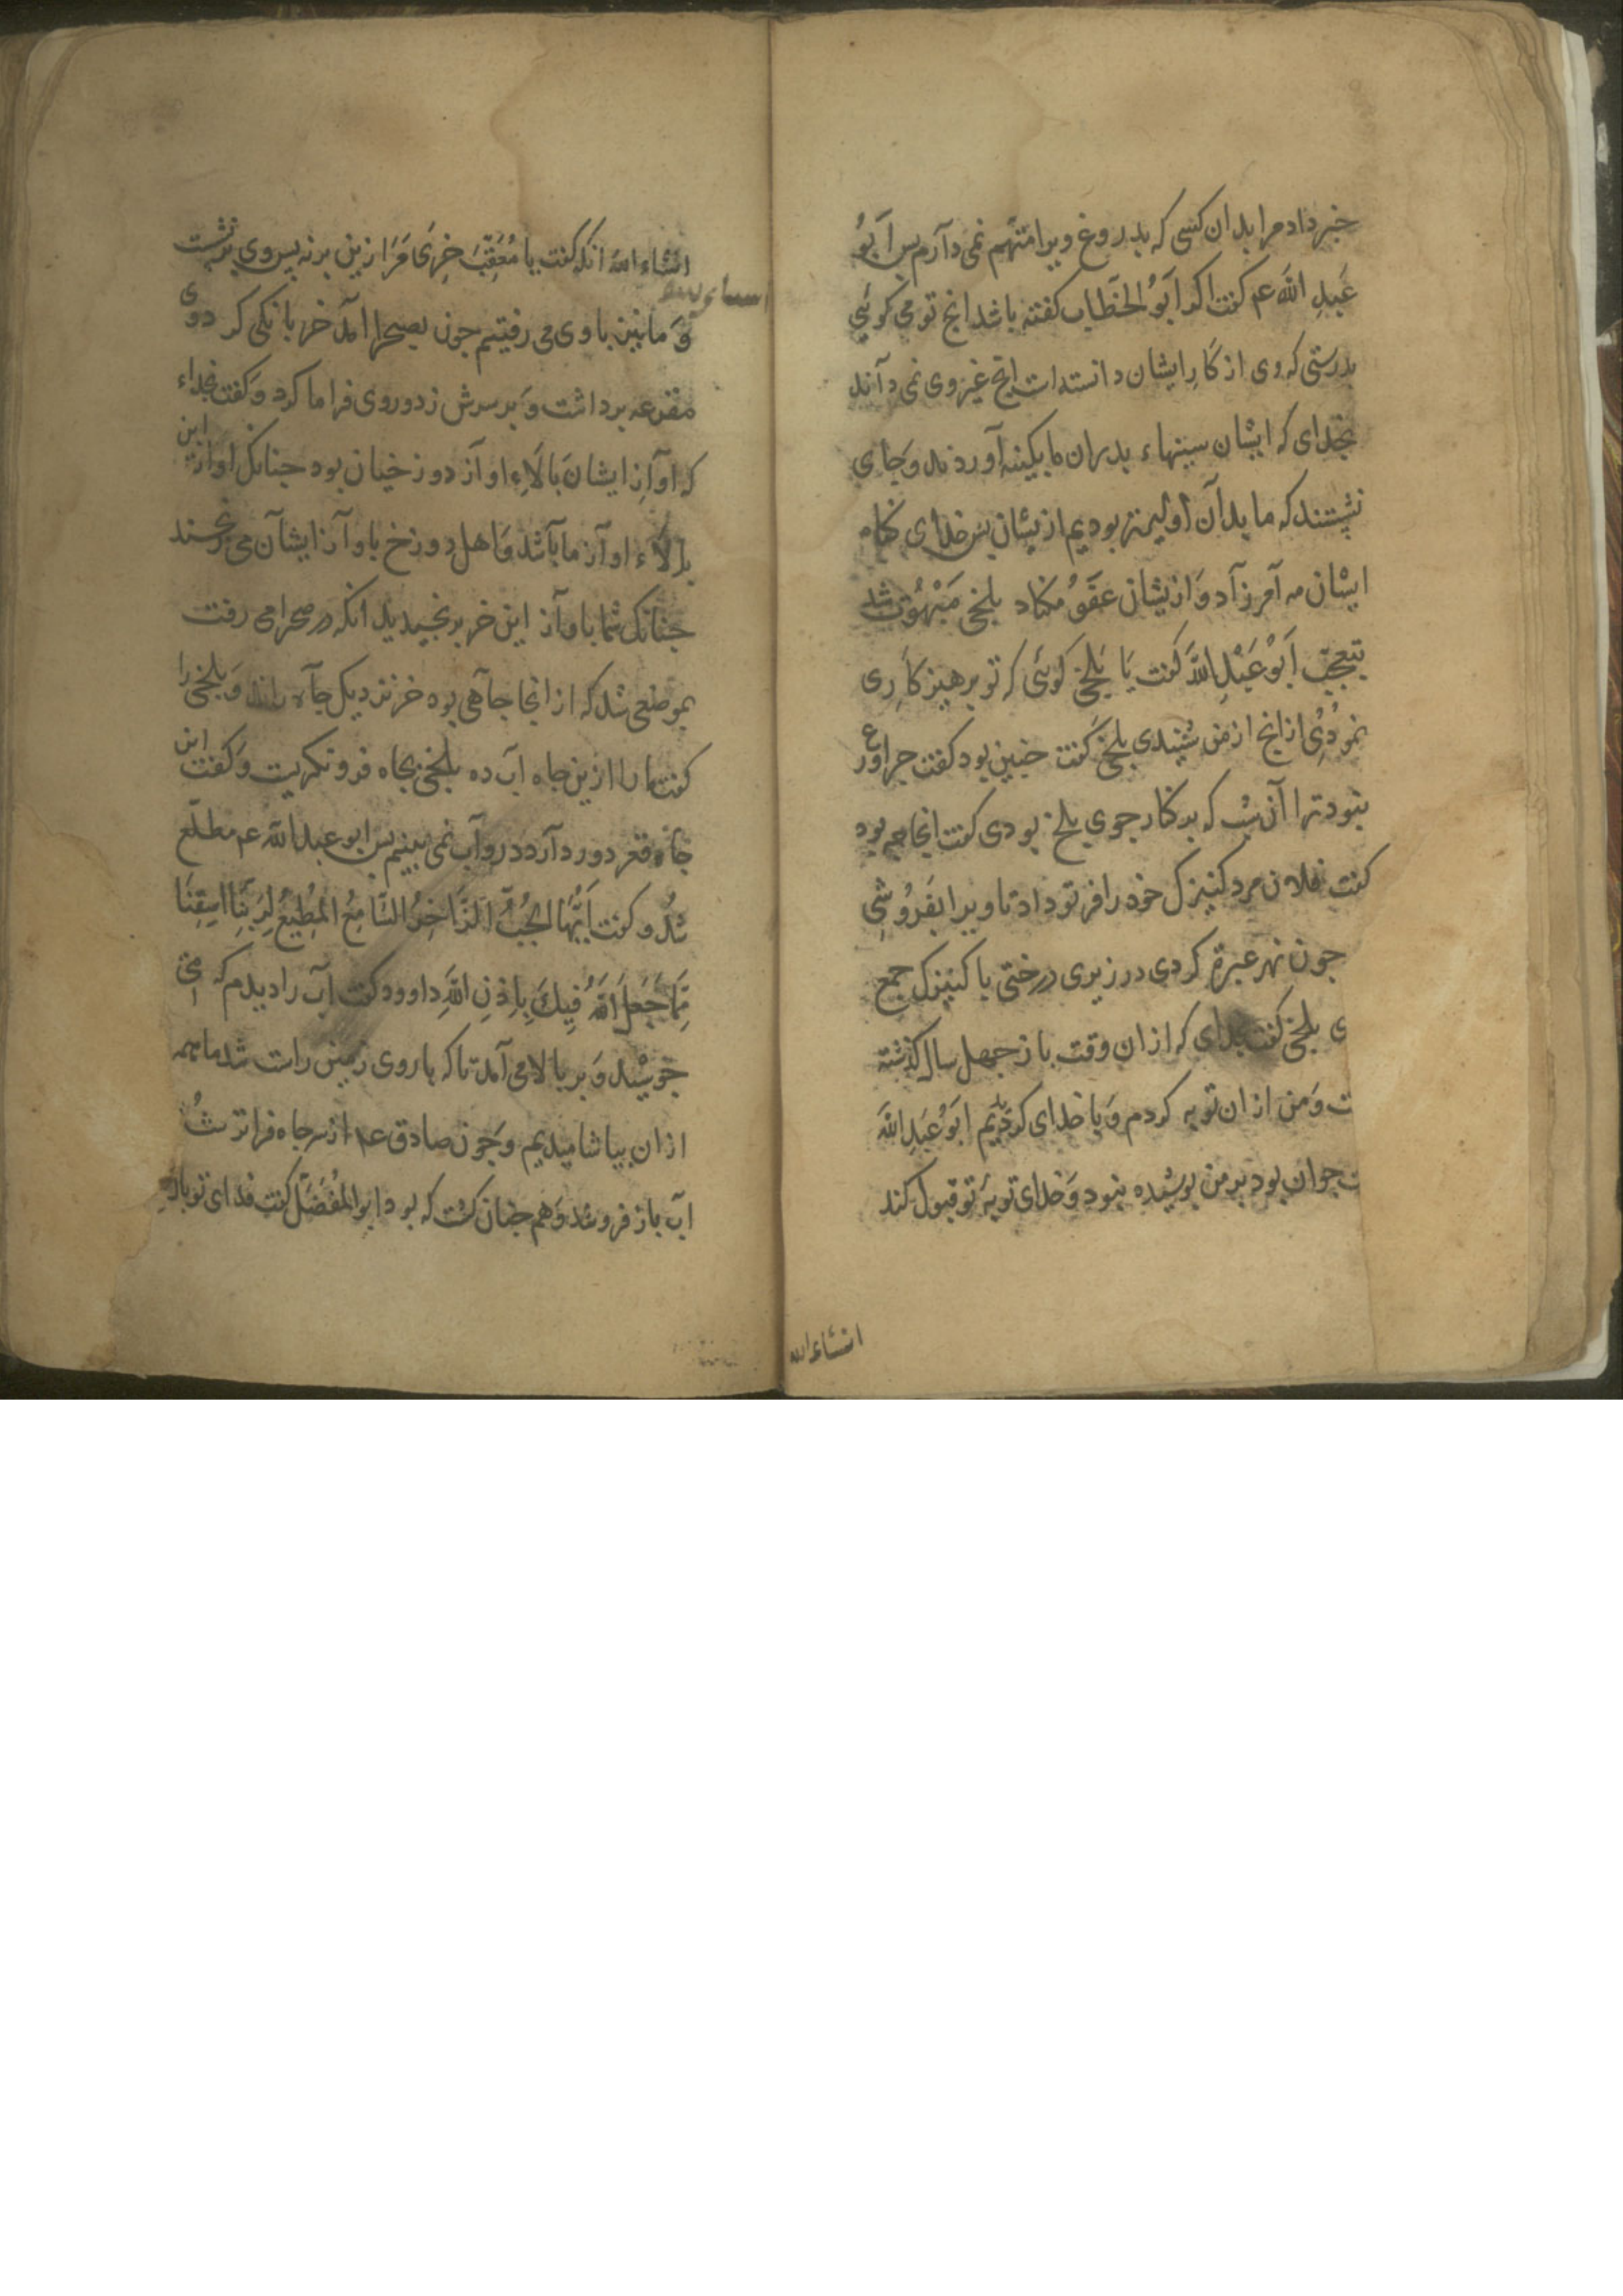 خبر داد مرا بدان کسی که بدروغ ویرا متهم نمی دارم بس اَبوُ
عَبدِ اللّه عم کفت اکر اَبوُ الخَطاب کفته باشد انج تو می کوئی
بدرستی که وی از کارِ ایشان دانسته است انج غیر وی نمی داند
بخدای که ایشان سینهاء بدران ما بکینه آوردند و جای
نشستند که ما بدان اولیتر بودیم ازیشان بس خدای کناه
ایشان مه آمرزاد و ازیشان عفو مکناد بلخی مَبْهُوت شد
بتعجب اَبوْ عَبْدِ اللّه کفت یَا بَلخی کوئی که تو برهیز کاری
نمودی از انج از من شنیدی بلخی کفت جنین بود کفت جرا ورع
نبود ترا آن شب که بر کنار جوی بلخ بودی کفت انجا جه بود
کفت فلان مرد کنیزک خود را فر تو داد تا ویرا بفروُشی
جون نهر عبره کردی در زیری درختی با کنیزک جمع
ی بلخی کفت بخدای که از ان وقت باز جهل سال کذشته
ت و من از ان توبه کردم و با خدای کردیم اَبوُ عَبدِ اللّه
ت جوان بود بر من بوشیده نبود و خدای توبهٔ تو قبول کند
انشاءالله
انشاء الله انکه کفت یا مُعَقِّب خر مرا زین برنه بس وی برنشست
وَ ما نیز با وی می رفتیم جون بصحرا آمد خر بانکی کرد وی
مقرعه برداشت وَ بر سرش زد و روی فرا ما کرد وَ کفت بخداء
که اوازِ ایشان بالاءِ اواز دوزخیان بود جنانک اواز این
بالاء اواز ما باشد و اهل دوزخ باواز ایشان می برنجند
جنانک شما باواز این خر برنجیدید انکه در صحرا می رفت
بموضعی شد که از انجا جاهی بود خر نزدیک جاه راند و بلخی را
کفت ما را ازین جاه آب ده بلخی بجاه فرو نکریت و کفت این
جاه قعر دور دارد درو آب نمی بینم بس ابو عبد اللّه عم مطلع
شد و کفت اَیُّهَا الجُبُّ الزَّاخِرُ السَّامِعُ المُطِیعُ لِرَبِّنَا اسقِنَا
مِمَّا جَعَلَ اللّهُ فِیكَ بِاِذنِ اللّهِ داوود کفت آب را دیدم که می
جوشید وَ بر بالا می آمد تا که با روی زمین راست شد ما همه
از ان بیاشامیدیم و جون صادق عم از سر جاه فراتر شُد
آب باز فرو شد و هم جنان کشت که بود ابو المُفَضَّل کفت فدای تو باد